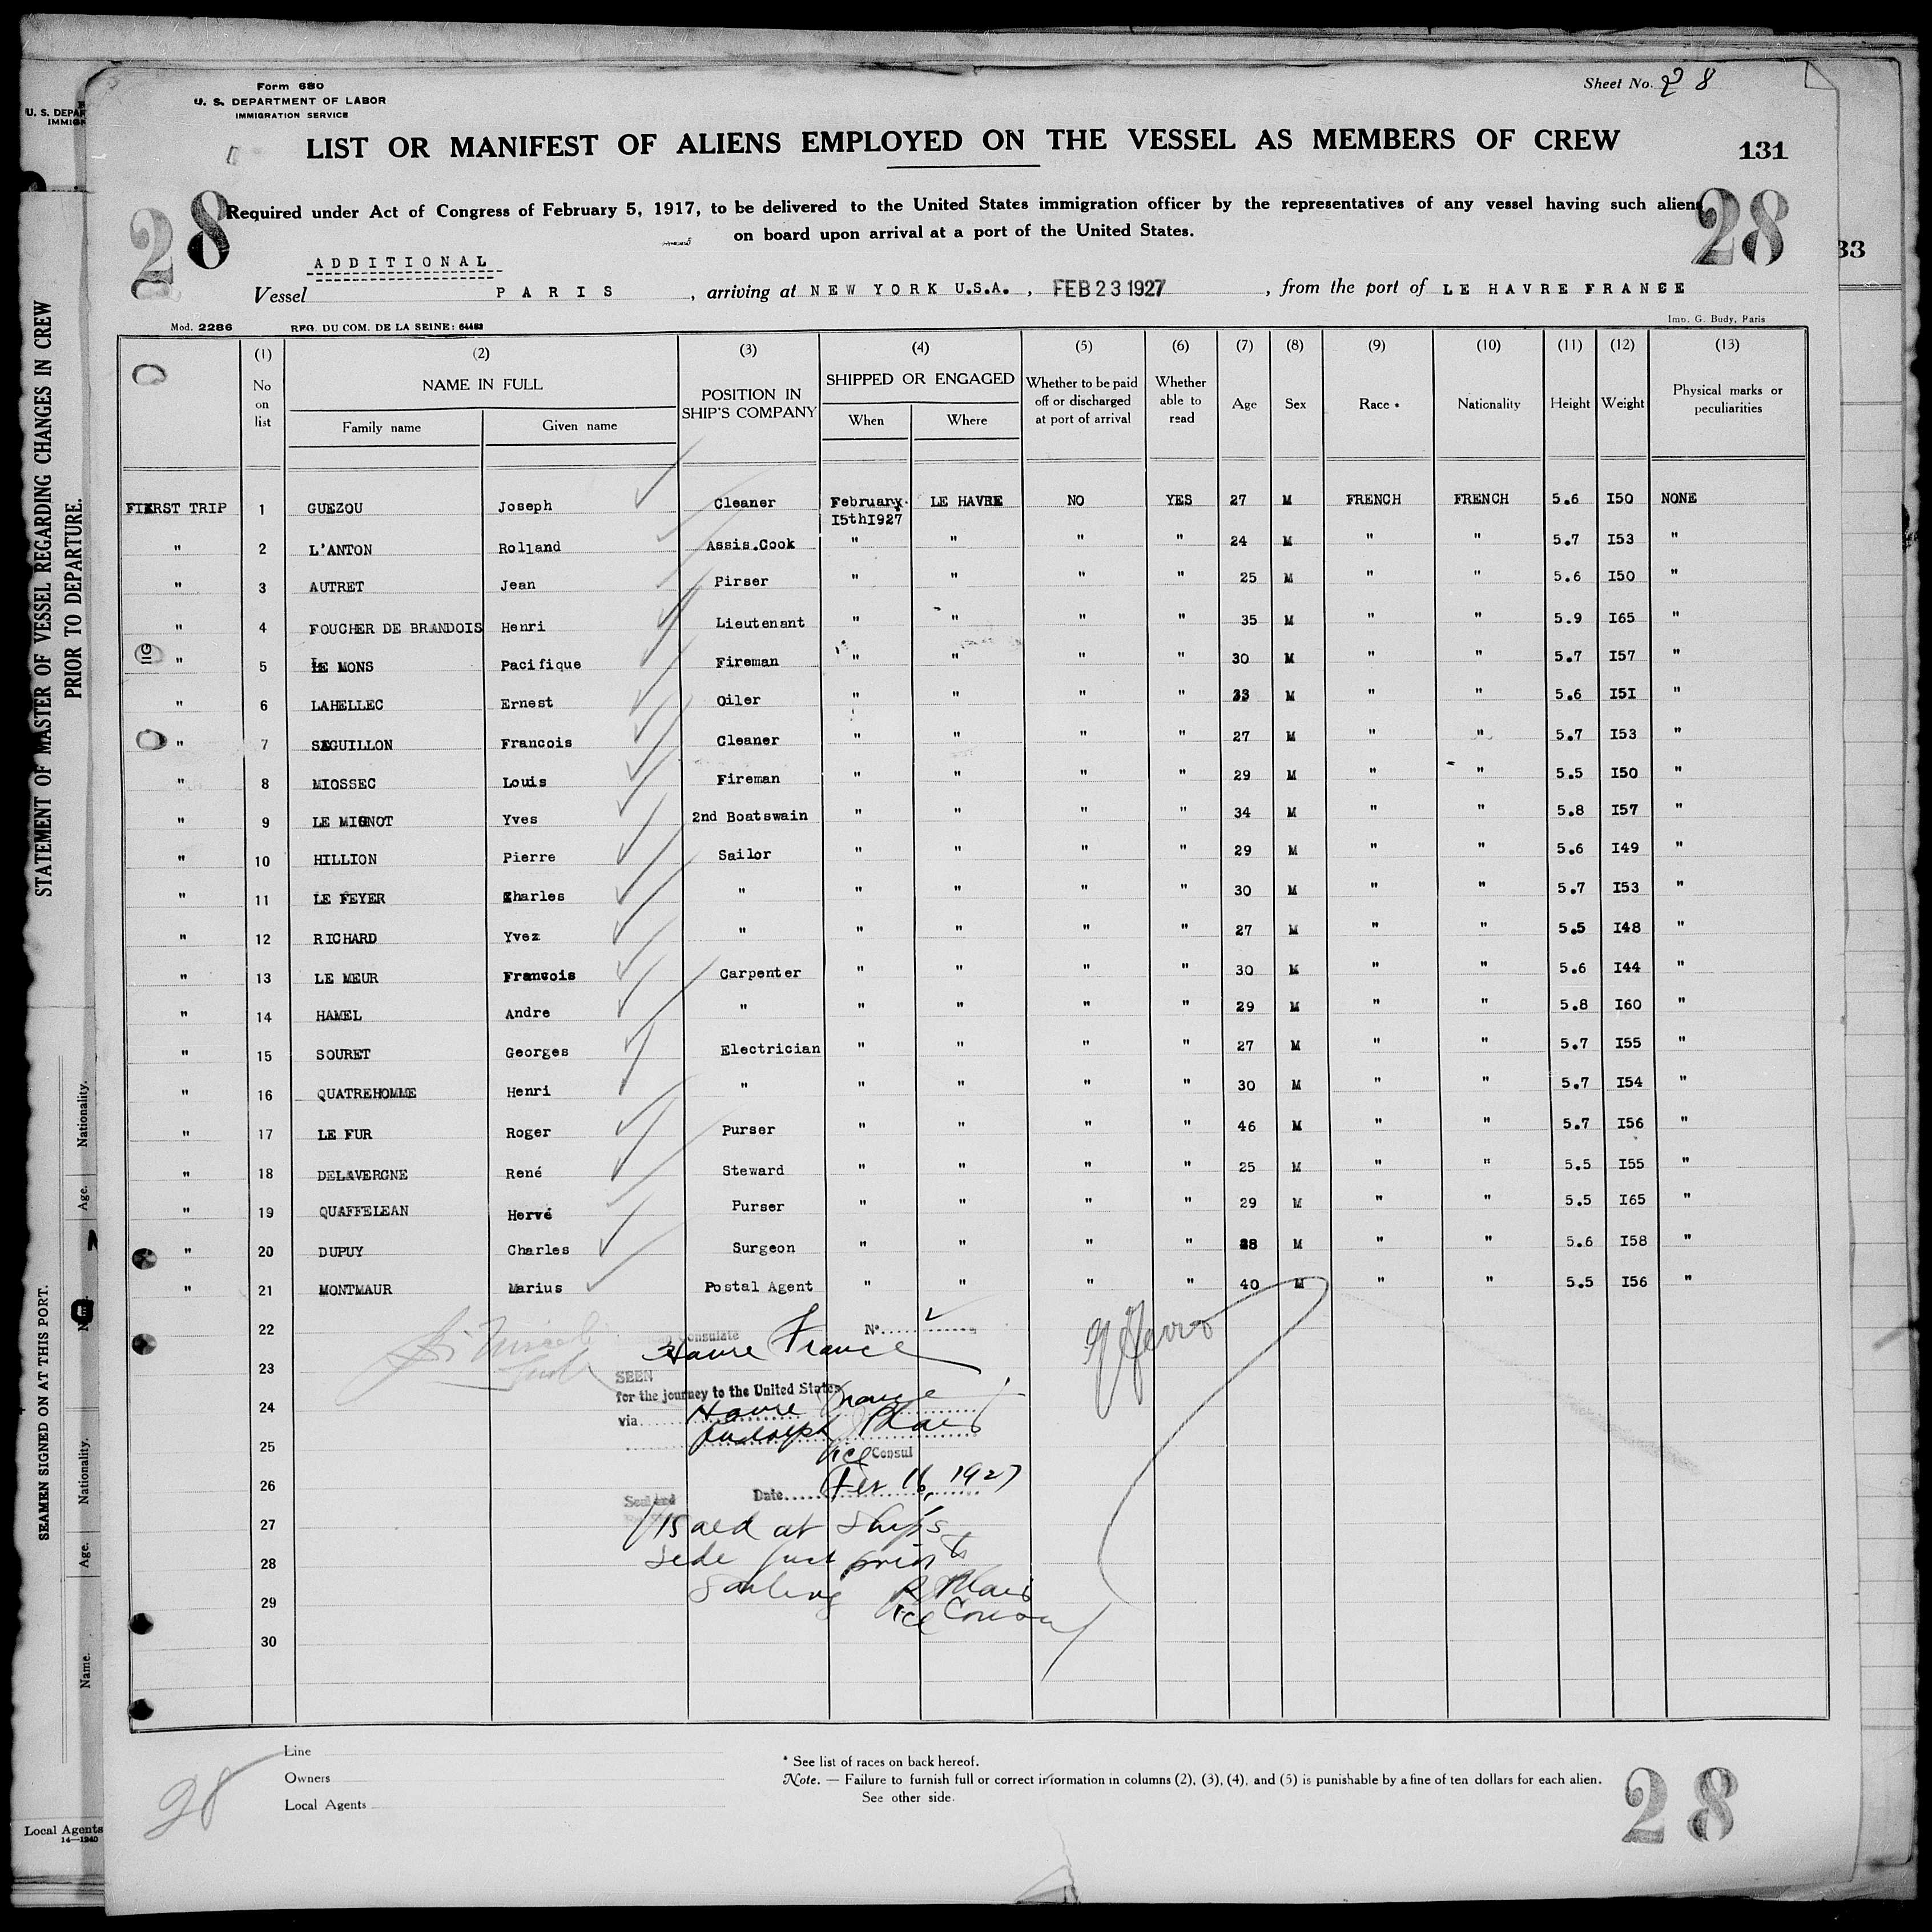 Form 680
U. S. DEPARTMENT OF LABOR
IMMIGRATION SERVICE
Sheet No. 28
LIST OR MANIFEST OF ALIENS EMPLOYED ON THE VESSEL AS MEMBERS OF CREW
131
28
Required under Act of Congress of February 5, 1917, to be delivered to the United States immigration officer by the representatives of any vessel having such aliens
on board upon arrival at a port of the United States.
28
33
ADDITIONAL
Vessel PARIS, arriving at NEW YORK U.S.A., FEB 23 1927, from the port of LE HAVRE FRANCE
Mod. 2286 REG. DU COM. DE LA SEINE: 64483 Imp. G. Budy, Paris
(1) (2) (3) (4) (5) (6) (7) (8) (9) (10) (11) (12) (13)
No on list NAME IN FULL Family name Given name POSITION IN SHIP'S COMPANY SHIPPED OR ENGAGED When Where Whether to be paid off or discharged at port of arrival Whether able to read Age Sex Race * Nationality Height Weight Physical marks or peculiarities
FIRST TRIP 1 GUEZOU Joseph Cleaner February 15th1927 LE HAVRE NO YES 27 M FRENCH FRENCH 5.6 I50 NONE
" 2 L'ANTON Rolland Assis.Cook " " " " 24 M " " 5.7 I53 "
" 3 AUTRET Jean Pirser " " " " 25 M " " 5.6 I50 "
" 4 FOUCHER DE BRANDOIS Henri Lieutenant " " " " 35 M " " 5.9 I65 "
" 5 LE MONS Pacifique Fireman " " " " 30 M " " 5.7 I57 "
" 6 LAHELLEC Ernest Oiler " " " " 33 M " " 5.6 I5I "
" 7 SAGUILLON Francois Cleaner " " " " 27 M " " 5.7 I53 "
" 8 MIOSSEC Louis Fireman " " " " 29 M " " 5.5 I50 "
" 9 LE MIGNOT Yves 2nd Boatswain " " " " 34 M " " 5.8 I57 "
" 10 HILLION Pierre Sailor " " " " 29 M " " 5.6 I49 "
" 11 LE FEYER Charles " " " " " 30 M " " 5.7 I53 "
" 12 RICHARD Yvez " " " " " 27 M " " 5.5 I48 "
" 13 LE MEUR Francois Carpenter " " " " 30 M " " 5.6 I44 "
" 14 HAMEL Andre " " " " " 29 M " " 5.8 I60 "
" 15 SOURET Georges Electrician " " " " 27 M " " 5.7 I55 "
" 16 QUATREHOMME Henri " " " " " 30 M " " 5.7 I54 "
" 17 LE FUR Roger Purser " " " " 46 M " " 5.7 I56 "
" 18 DELAVERGNE René Steward " " " " 25 M " " 5.5 I55 "
" 19 QUAFFELEAN Hervé Purser " " " " 29 M " " 5.5 I65 "
" 20 DUPUY Charles Surgeon " " " " 28 M " " 5.6 I58 "
" 21 MONTMAUR Marius Postal Agent " " " " 40 M " " 5.5 I56 "
22
23
24
25
26
27
28
29
30
Consulate N°
Havre France
SEEN
for the journey to the United States
via Havre France
Rudolph Blais
Vice Consul
Date Feb 16, 1927
Visaed at ship's
side just prior to
sailing
Vice Consul
Line
Owners
Local Agents
* See list of races on back hereof.
Note. — Failure to furnish full or correct information in columns (2), (3), (4), and (5) is punishable by a fine of ten dollars for each alien.
See other side.
28
28
STATEMENT OF MASTER OF VESSEL REGARDING CHANGES IN CREW
PRIOR TO DEPARTURE.
SEAMEN SIGNED ON AT THIS PORT.
Nationality.
Age.
Nationality.
Age.
Name.
Local Agents
14—1240